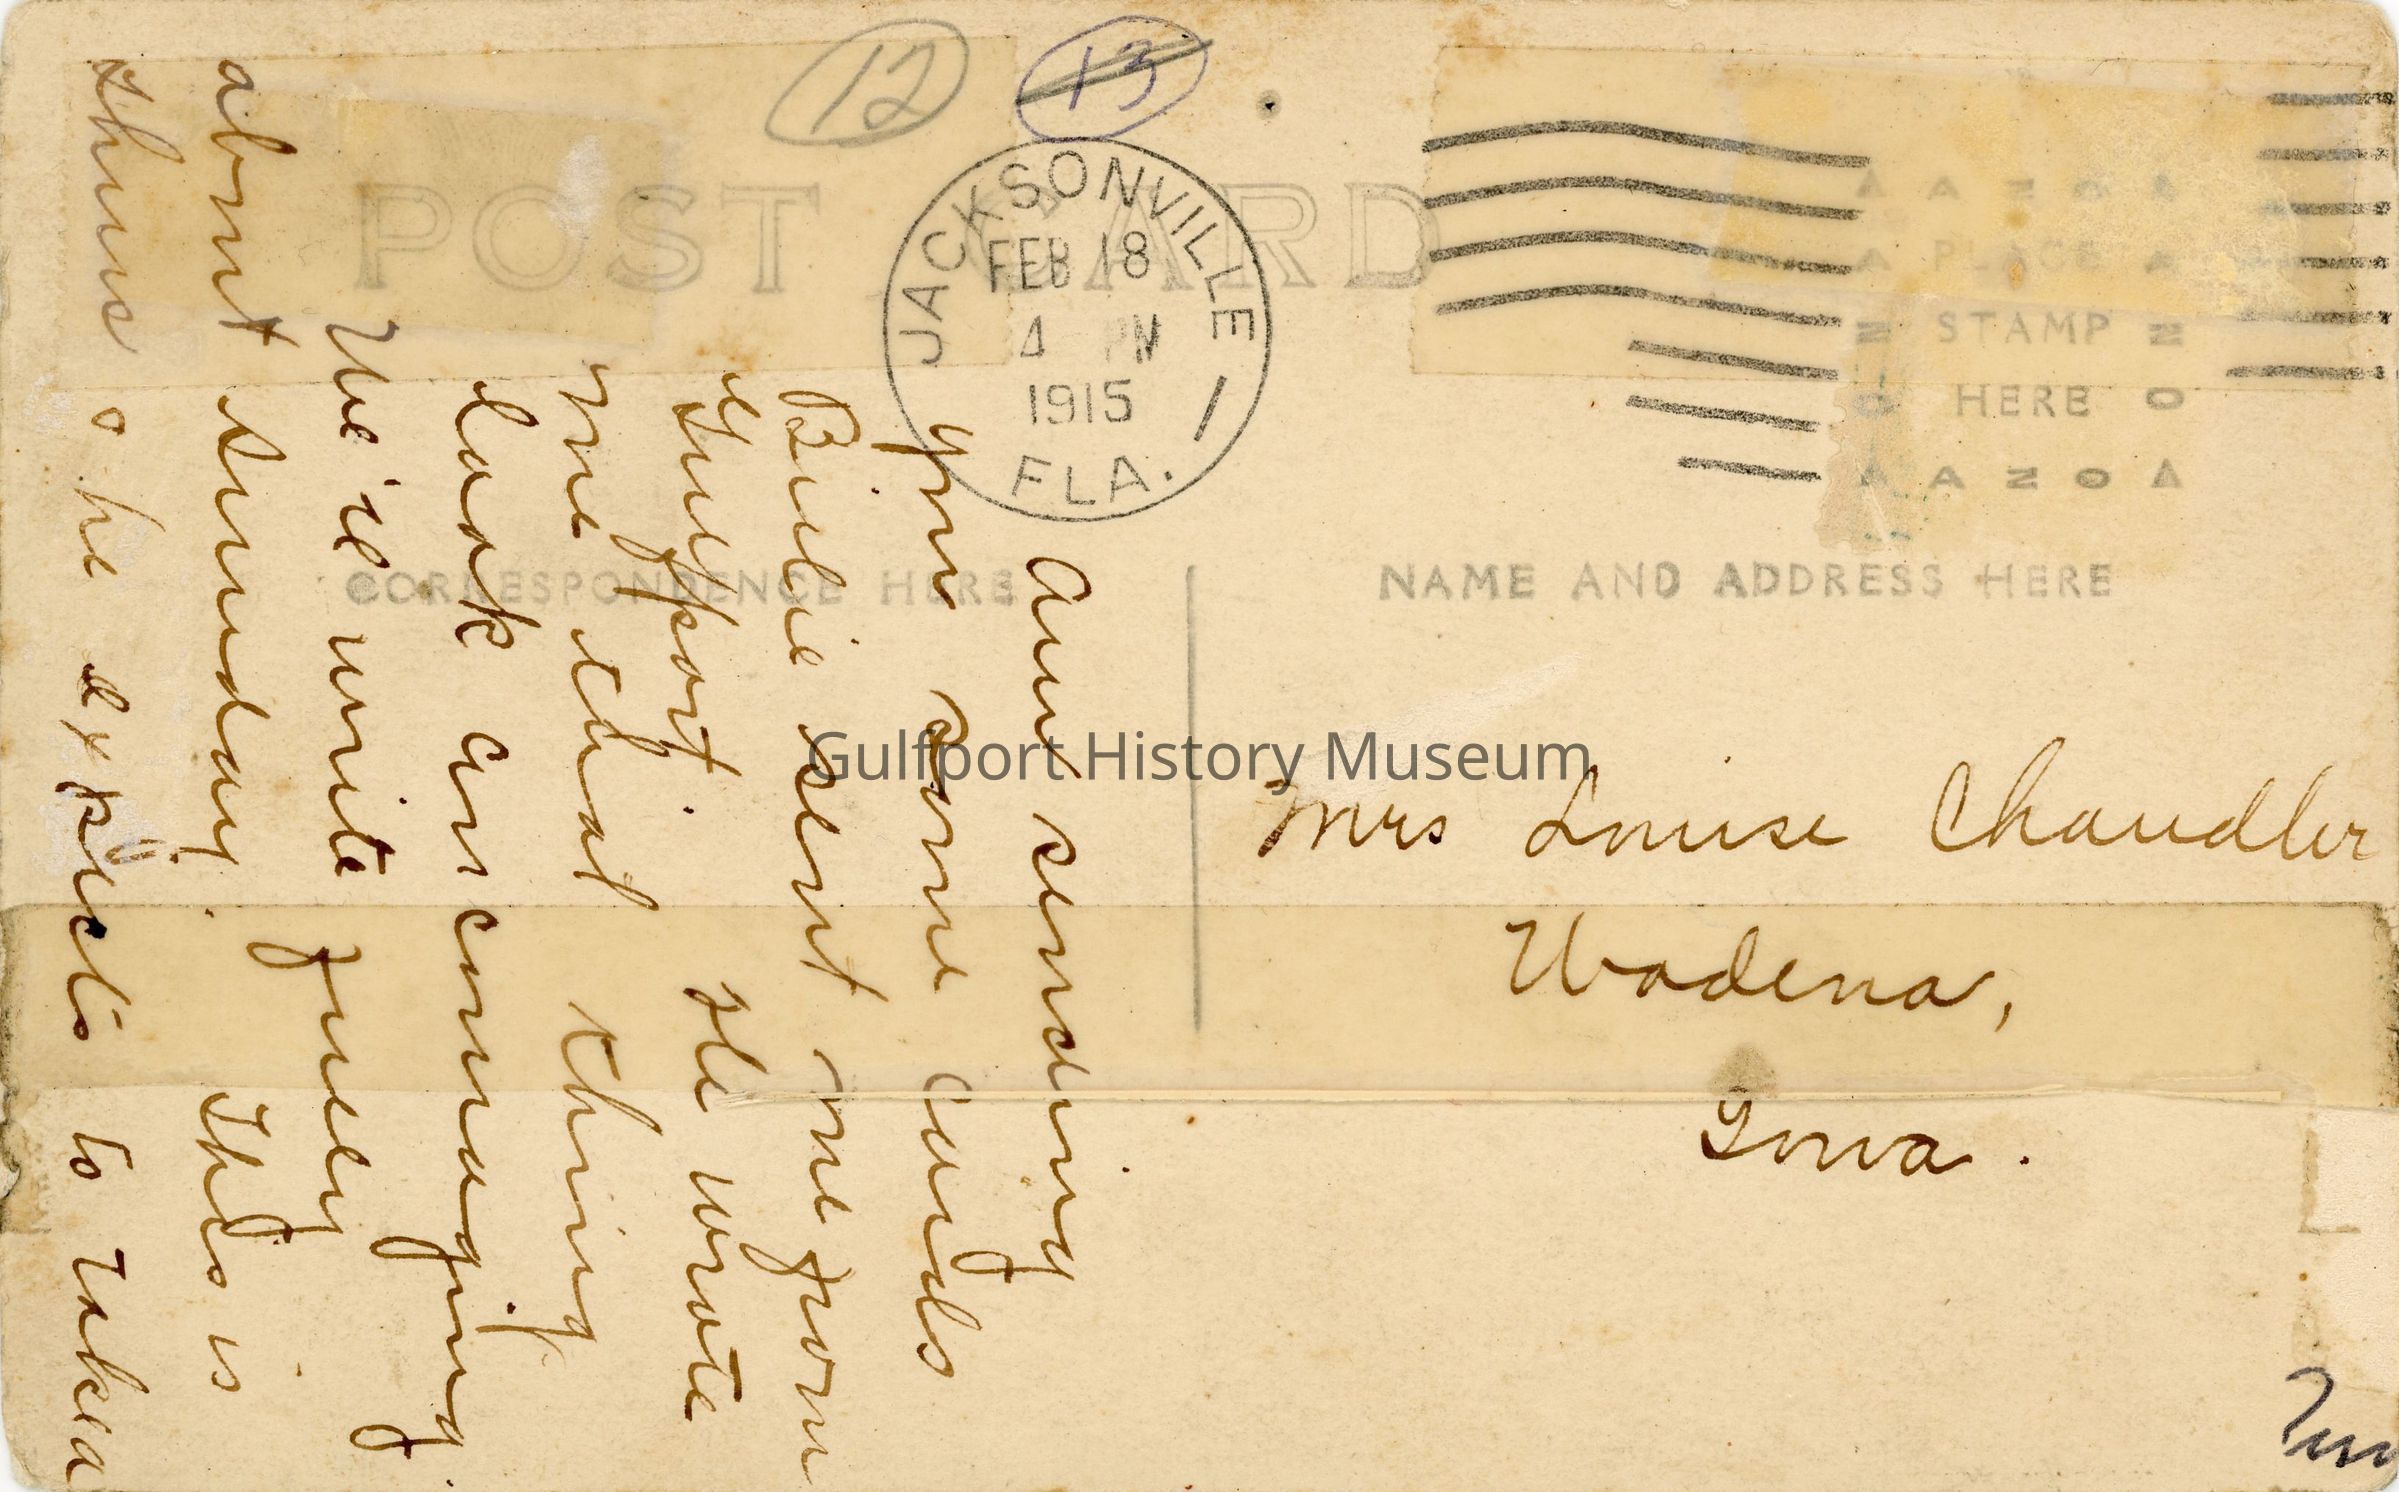 12 13
POST CARD
JACKSONVILLE
FEB 18
4 PM
1915
FLA.
AZO
PLACE
STAMP
HERE
CORRESPONDENCE HERE
NAME AND ADDRESS HERE
Am sending
you some cards
Billie sent me from
Gulfport. He wrote
me that thing
look encouraging.
We'll write fully
about Sunday. This is
Thurs he expects to take a
Mrs Louise Chandler
Wadena,
Iowa.
Gulfport History Museum